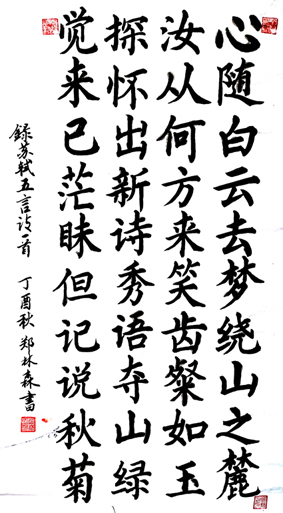 心随白云去梦绕山之麓
汝从何方来笑齿粲如玉
探怀出新诗秀语夺山绿
觉来已茫昧但记说秋菊
録苏轼五言诗一首 丁酉秋 郑林森書